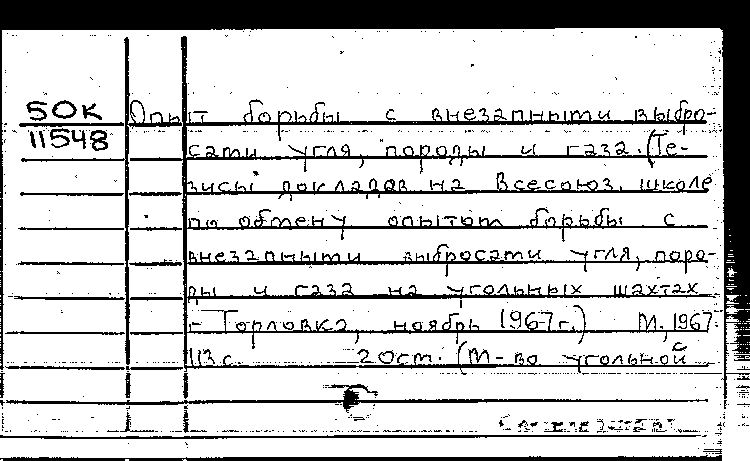 50К
11548
Опыт борьбы с внезапными выбро-
сами угля, породы и газа. (Те-
зисы докладов на Всесоюз. школе
по обмену опытом борьбы с
внезапными выбросами угля, поро-
ды и газа на угольных шахтах
г. Горловка, ноябрь 1967г.) М., 1967
113 с. 20см. (М-во угольной